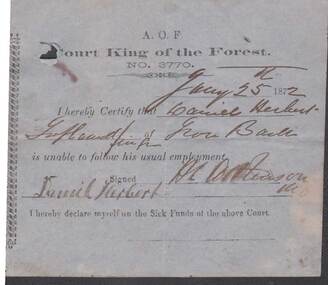 A. O. F
Court King of the Forest.
NO. 3770.
Jany 25th 1872
I hereby Certify that Daniel Herbert
of Iron Bark
is unable to follow his usual employment.
Signed
Daniel Herbert
I hereby declare myself on the Sick Funds of the above Court.